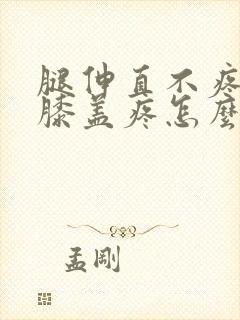 腿伸直不疼
膝盖疼怎麽
孟剛